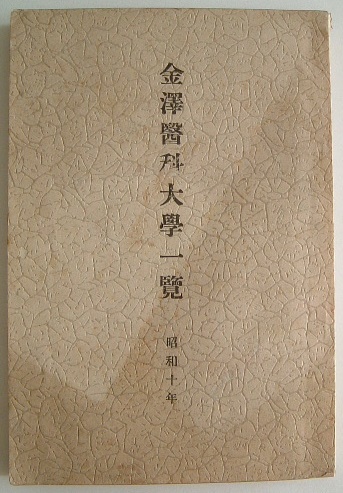 金澤醫科大學一覽
昭和十年